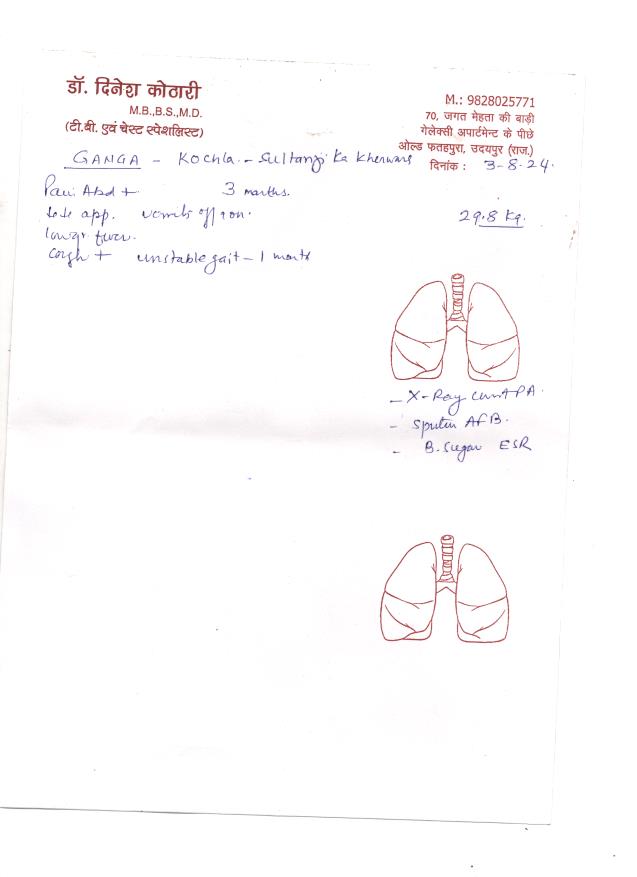 डॉ. दिनेश कोठारी
M.B.,B.S.,M.D.
(टी.बी. एवं चेस्ट स्पेशलिस्ट)
M.: 9828025771
70, जगत मेहता की बाड़ी
गेलेक्सी अपार्टमेन्ट के पीछे
ओल्ड फतहपुरा, उदयपुर (राज.)
दिनांक : 3-8-24.
GANGA - Kochla - Sultanji Ka Kherwara
Pain Abd + 3 months.
app. vomits off & on.
29.8 Kg.
fever.
Cough + unstable gait - 1 month
- X-Ray Chest PA.
- Sputum AFB.
- B. Sugar ESR